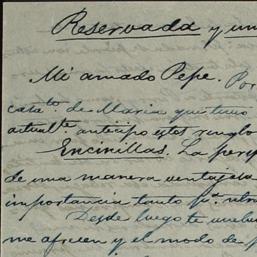 Reservada y un
Mi amado Pepe. Por
cata. de Maria
actualte. anticipo estos renglo
Encinillas. La perip
de una manera ventajosa
importancia tanto pa.
Desde luego te
me afrecen y el modo de p